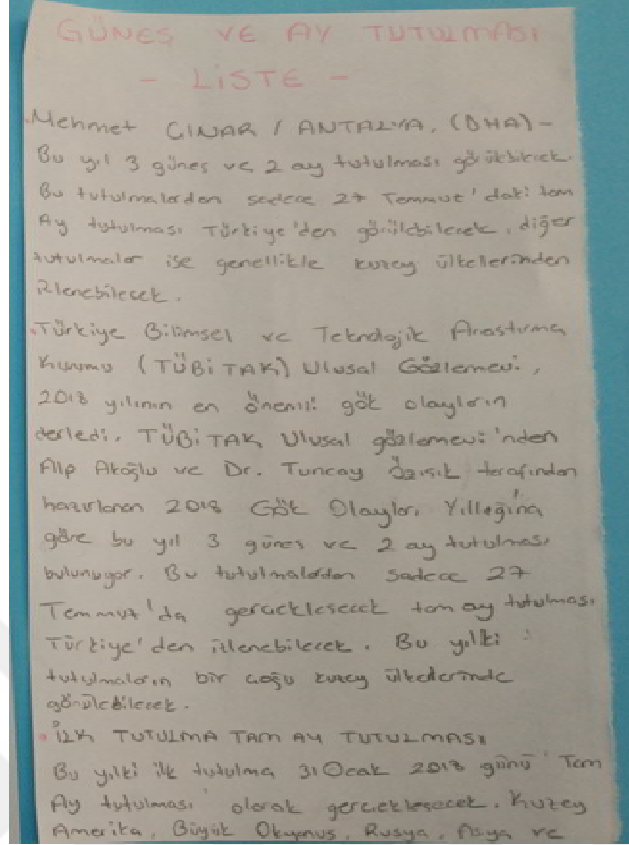 GÜNEŞ VE AY TUTULMASI
- LİSTE -
Mehmet ÇINAR / ANTALYA, (DHA) -
Bu yıl 3 güneş ve 2 ay tutulması görülebilecek.
Bu tutulmalardan sadece 27 Temmuz'daki tam
Ay tutulması Türkiye'den görülebilecek, diğer
tutulmalar ise genellikle kuzey ülkelerinden
izlenebilecek.
Türkiye Bilimsel ve Teknolojik Araştırma
Kurumu (TÜBİTAK) Ulusal Gözlemevi,
2018 yılının en önemli gök olayların
derledi. TÜBİTAK Ulusal gözlemevi'nden
Alp Akoğlu ve Dr. Tuncay Özışık tarafından
hazırlanan 2018 Gök Olayları Yıllığına
göre bu yıl 3 güneş ve 2 ay tutulması
bulunuyor. Bu tutulmalardan sadece 27
Temmuz'da gerçekleşecek tam ay tutulması
Türkiye'den izlenebilecek. Bu yılki
tutulmaların bir çoğu kuzey ülkelerinde
görülebilecek.
İLK TUTULMA TAM AY TUTULMASI
Bu yılki ilk tutulma 31 Ocak 2018 günü 'Tam
Ay tutulması' olarak gerçekleşecek. Kuzey
Amerika, Büyük Okyanus, Rusya, Asya ve